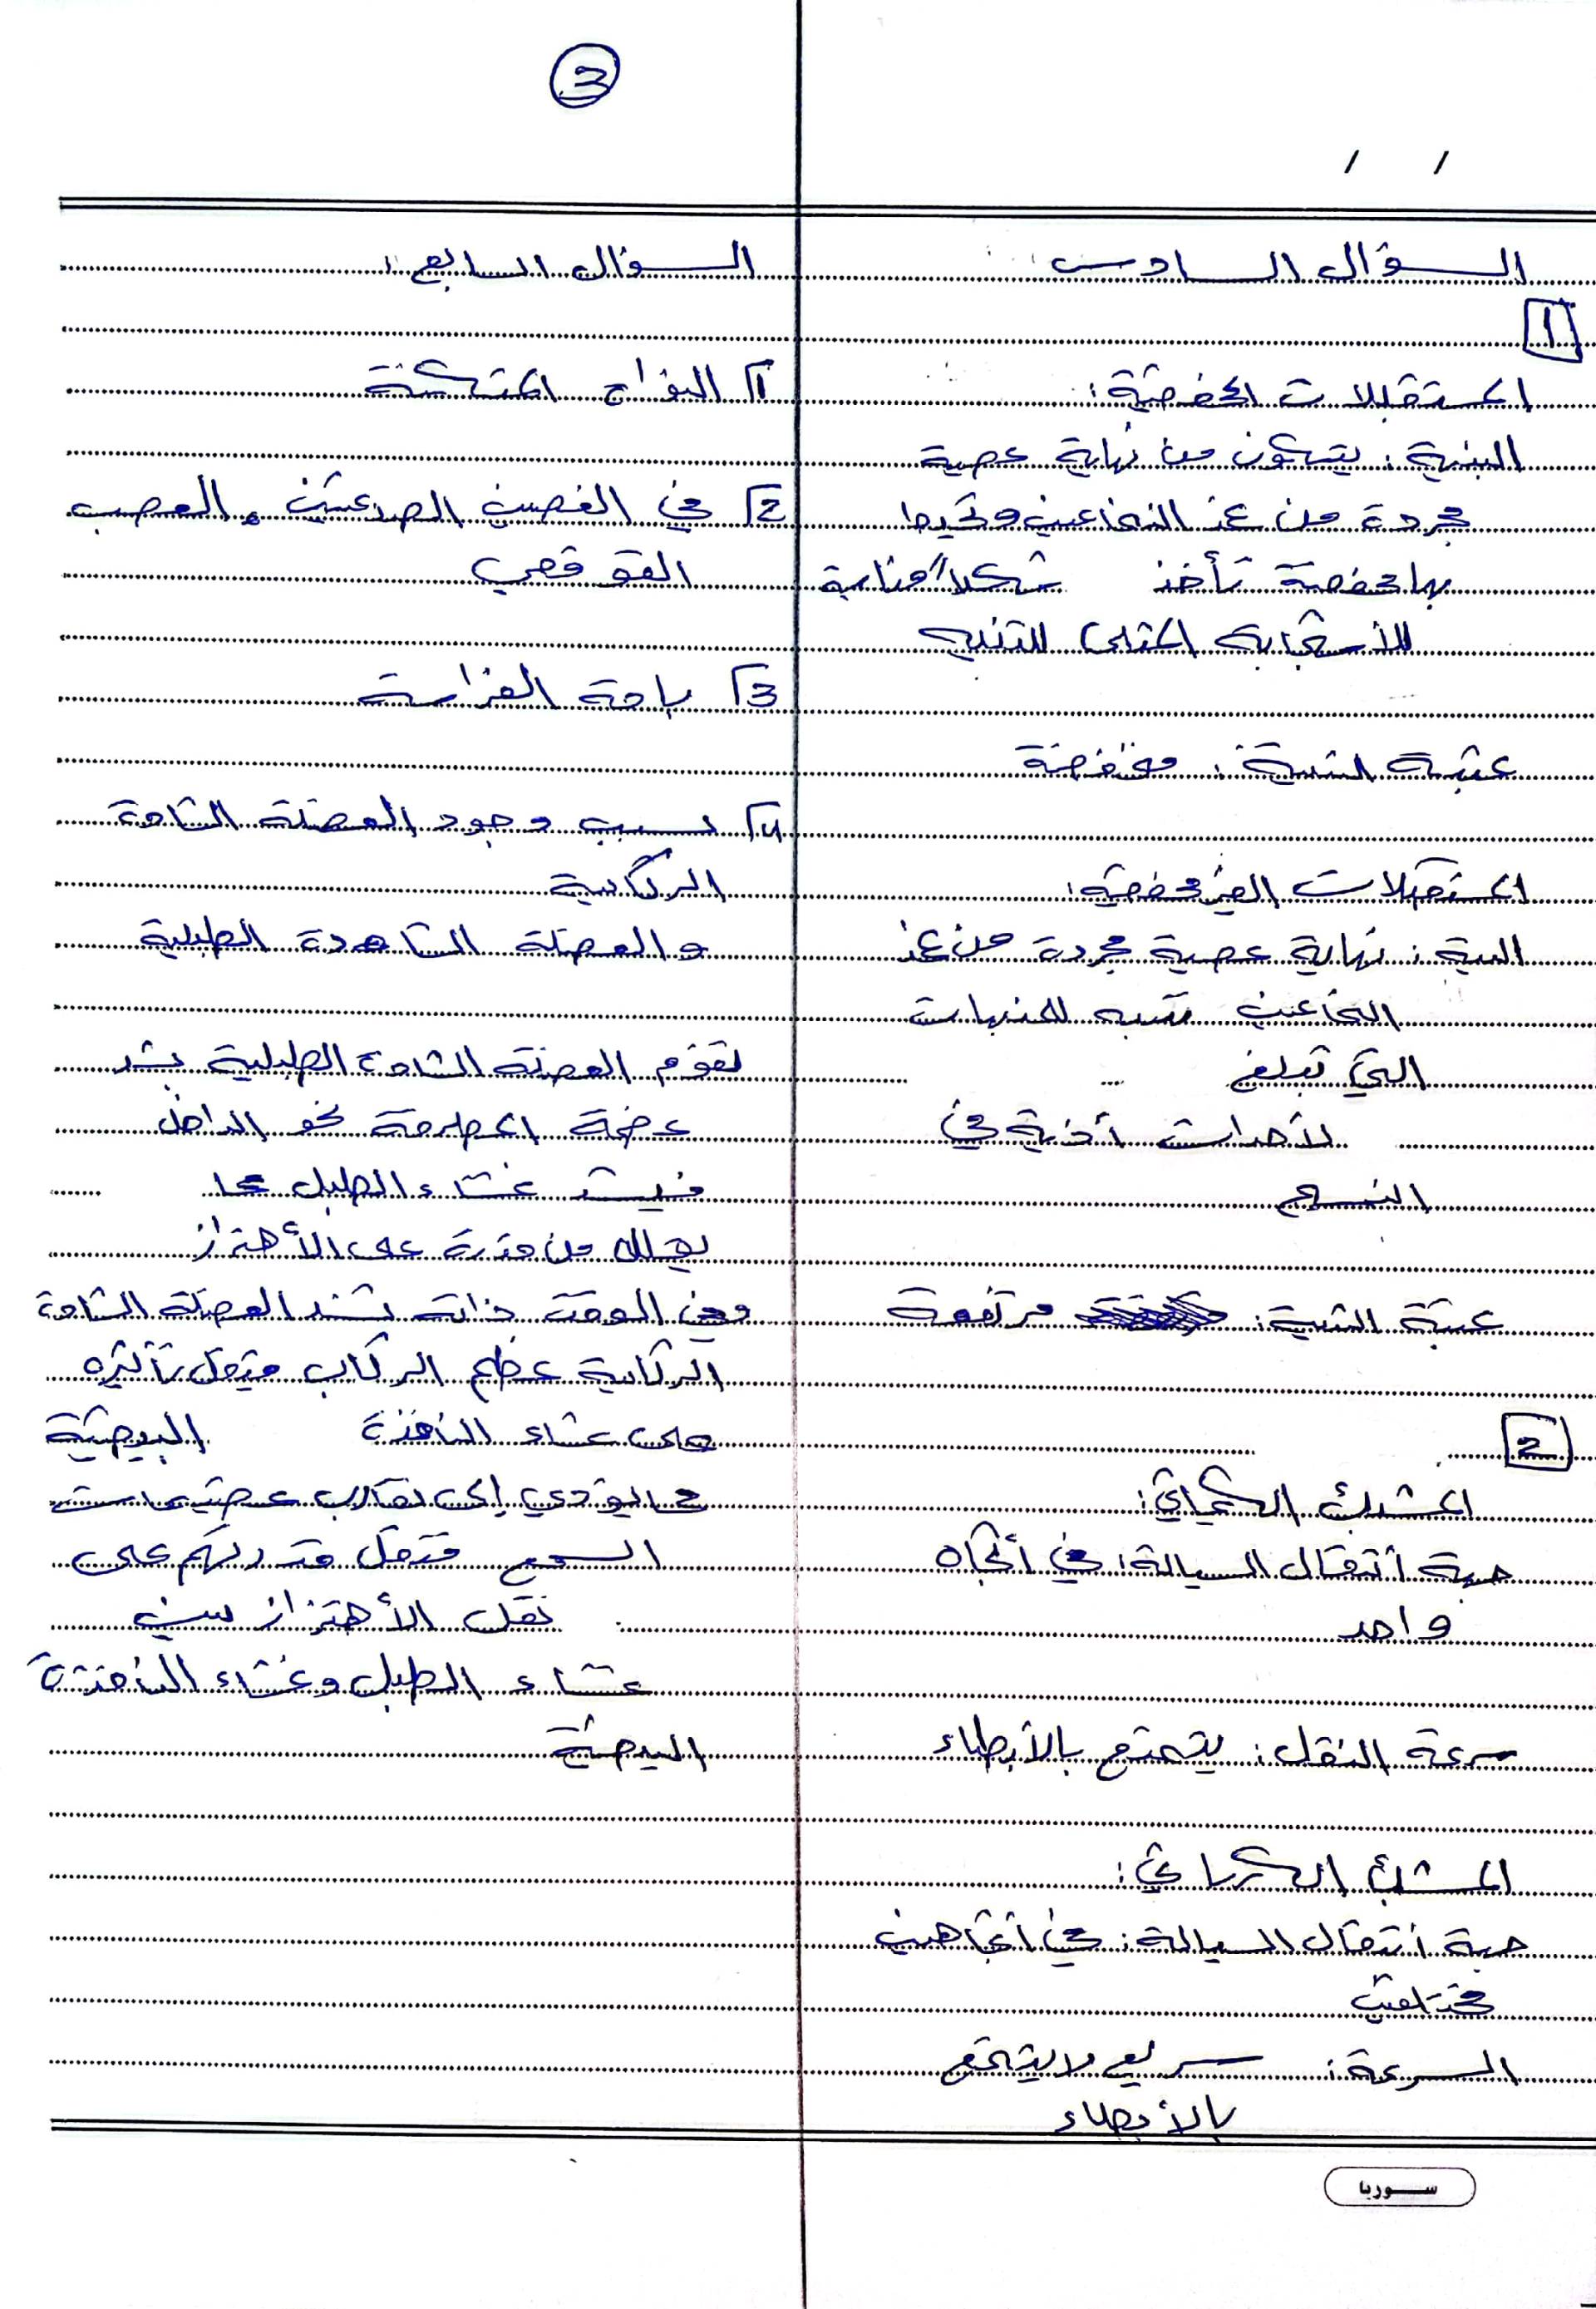 3
/ /
السؤال السادس:
1
المستقبلات المحفظية:
البنية: يتكون من نهاية عصبية
مجردة من غمد النخاعين وتحيط
بها محفظة تأخذ شكلاً مناسبة
للأستجابة المثلى للتنبيه
عتبة التنبيه: منخفضة
المستقبلات الغير محفظية:
البنية: نهاية عصبية مجردة من غمد
النخاعين تتنبه للمنبهات
التي تبلغ
لأحداث أذية في
النسج
عتبة التنبيه: مرتفعة
2
المشبك الكيميائي:
جهة أنتقال السيالة: في أتجاه
واحد
سرعة النقل: يتمتع بالأبطاء
المشبك الكهربائي:
جهة أنتقال السيالة: في أتجاهين
مختلفين
السرعة: سريع لا يتمتع
بالأبطاء
السؤال السابع:
1 النواة المتكتنة
2 في الفصين الصدغيين، العصب
القوقعي
3 باحة الفراسة
4 بسبب وجود العضلة الشادة
الركابية
و العضلة الشاهدة الطبلية
تقوم العضلة الشادة الطبلية بشد
عضمة المطرقة نحو الداخل
فيشد غشاء الطبل مما
يقلل من قدرة على الأهتزاز
وفي الوقت ذاته تشد العضلة الشادة
الركابية عظم الركاب فيقل تأثيره
على غشاء النافذة البيضية
مما يؤدي إلى تقارب عظيمات
السمع فتقل قدرتهم على
نقل الأهتزاز بين
غشاء الطبل وغشاء النافذة
البيضية
سوريا